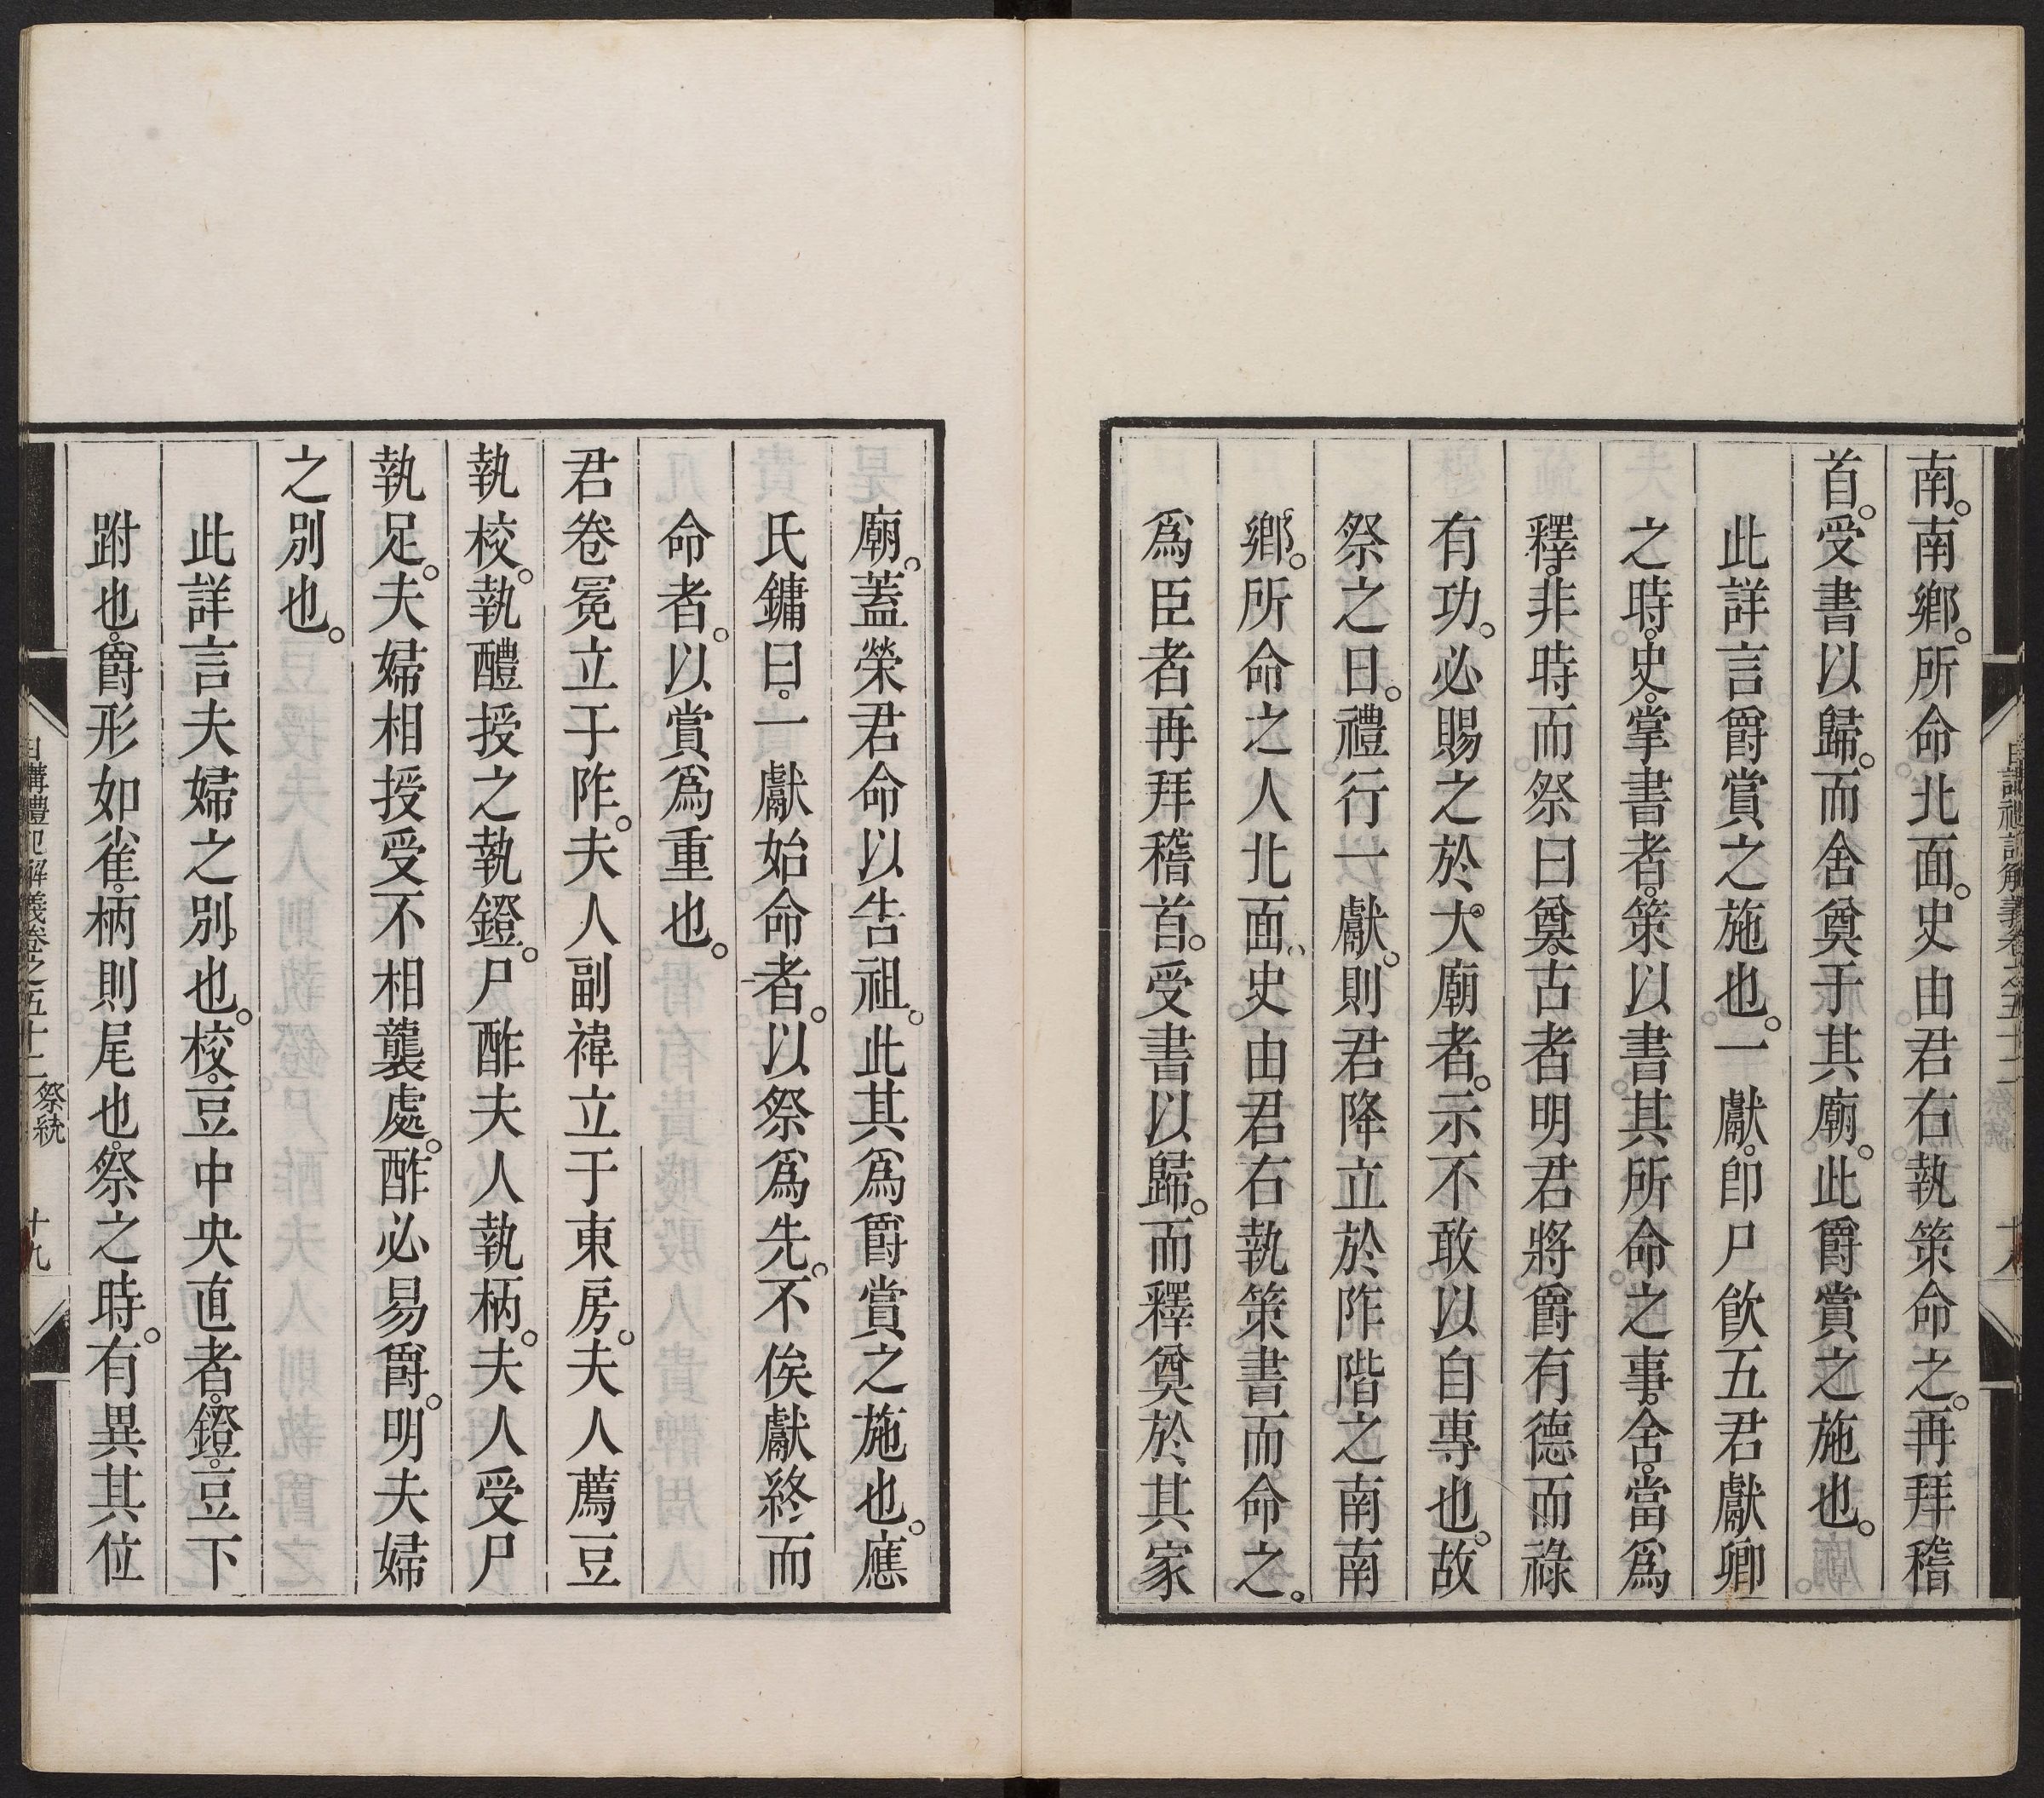 南。南鄉。所命北面。史由君右執策命之。再拜稽
首。受書以歸。而舍奠于其廟。此爵賞之施也。
此詳言爵賞之施也。一獻。卽尸飮五君獻卿
之時。史。掌書者。策以書其所命之事。舍。當爲
釋。非時而祭曰奠。古者明君將爵有德而祿
有功。必賜之於大廟者。示不敢以自專也。故
祭之日。禮行一獻。則君降立於阼階之南南
鄉。所命之人北面、史由君右執策書而命之。
爲臣者再拜稽首。受書以歸。而釋奠於其家
廟。蓋榮君命以告祖。此其爲爵賞之施也。應
氏鏞曰。一獻始命者。以祭爲先。不俟獻終而
命者。以賞爲重也。
君卷冕立于阼。夫人副褘立于東房。夫人薦豆
執校。執醴授之執鐙。尸酢夫人執柄。夫人受尸
執足。夫婦相授受不相襲處。酢必易爵。明夫婦
之別也。
此詳言夫婦之別也。校。豆中央直者。鐙。豆下
跗也。爵形如雀。柄則尾也。祭之時。有異其位
日講禮記解義卷之五十二 祭統 十九